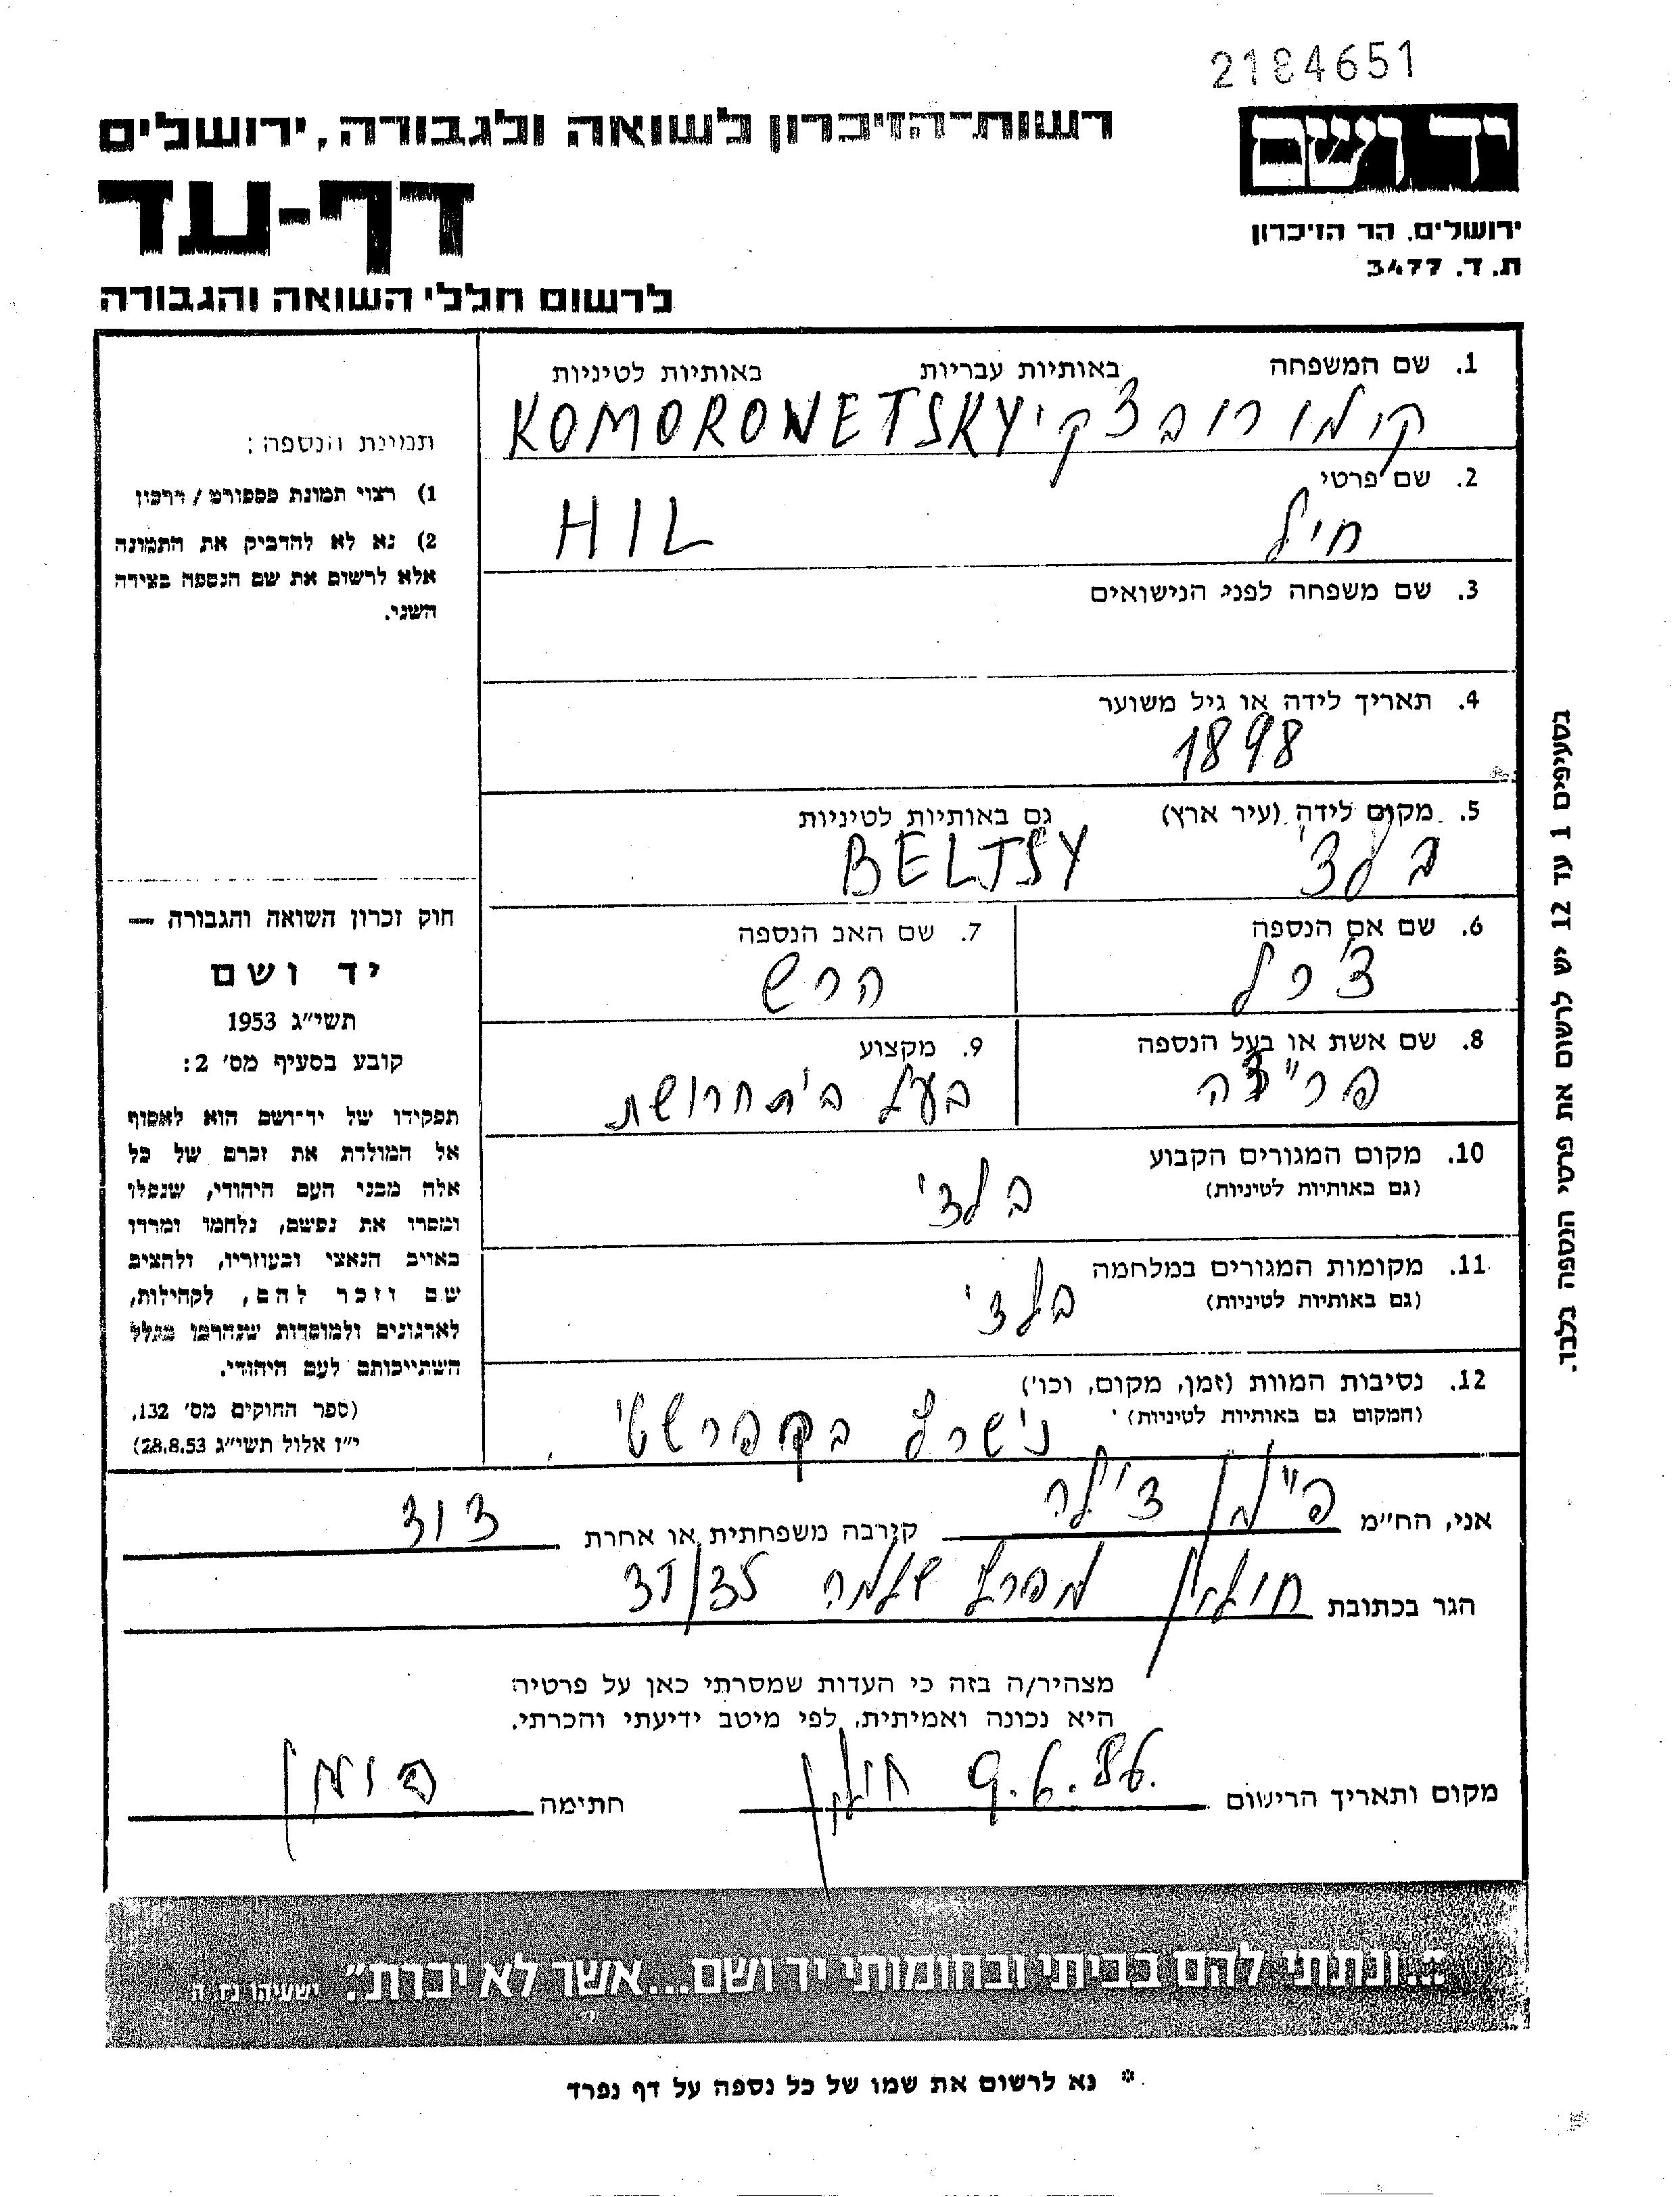 2184651
רשות-הזיכרון לשואה ולגבורה, ירושלים
יד ושם
דף-עד
ירושלים, הר הזיכרון
ת. ד. 3477
לרשום חללי השואה והגבורה
1. שם המשפחה באותיות עבריות באותיות לטיניות
קומורובצקי KOMORONETSKY
2. שם פרטי
חיל HIL
3. שם משפחה לפני הנישואים
4. תאריך לידה או גיל משוער
1898
5. מקום לידה (עיר ארץ) גם באותיות לטיניות
בלצי BELTSY
6. שם אם הנספה
צרל
7. שם האב הנספה
הרש
8. שם אשת או בעל הנספה
פריידה
9. מקצוע
בעל בית חרושת
10. מקום המגורים הקבוע
(גם באותיות לטיניות)
בלצי
11. מקומות המגורים במלחמה
(גם באותיות לטיניות)
בלצי
12. נסיבות המוות (זמן, מקום, וכו')
(המקום גם באותיות לטיניות)
נישרף בקפרשטי
תמונת הנספה:
1) רצוי תמונת פספורט / דרכון
2) נא לא להדביק את התמונה
אלא לרשום את שם הנספה בצידה
השני.
חוק זכרון השואה והגבורה —
יד ושם
תשי"ג 1953
קובע בסעיף מס' 2:
תפקידו של יד-ושם הוא לאסוף
אל המולדת את זכרם של כל
אלה מבני העם היהודי, שנפלו
ומסרו את נפשם, נלחמו ומרדו
באויב הנאצי ובעוזריו, ולהציב
שם וזכר להם, לקהילות,
לארגונים ולמוסדות שנחרבו בגלל
השתייכותם לעם היהודי.
(ספר החוקים מס' 132,
י"ז אלול תשי"ג 28.8.53)
בסעיפים 1 עד 12 יש לרשום את פרטי הנספה בלבד.
אני, הח"מ פיימן צילה קירבה משפחתית או אחרת דוד
הגר בכתובת חולון מפרץ שלמה
מצהיר/ה בזה כי העדות שמסרתי כאן על פרטיה
היא נכונה ואמיתית, לפי מיטב ידיעתי והכרתי.
מקום ותאריך הרישום חולון חתימה
"...ונתתי להם בביתי ובחומותי יד ושם...אשר לא יכרת". ישעיהו נו, ה
* נא לרשום את שמו של כל נספה על דף נפרד